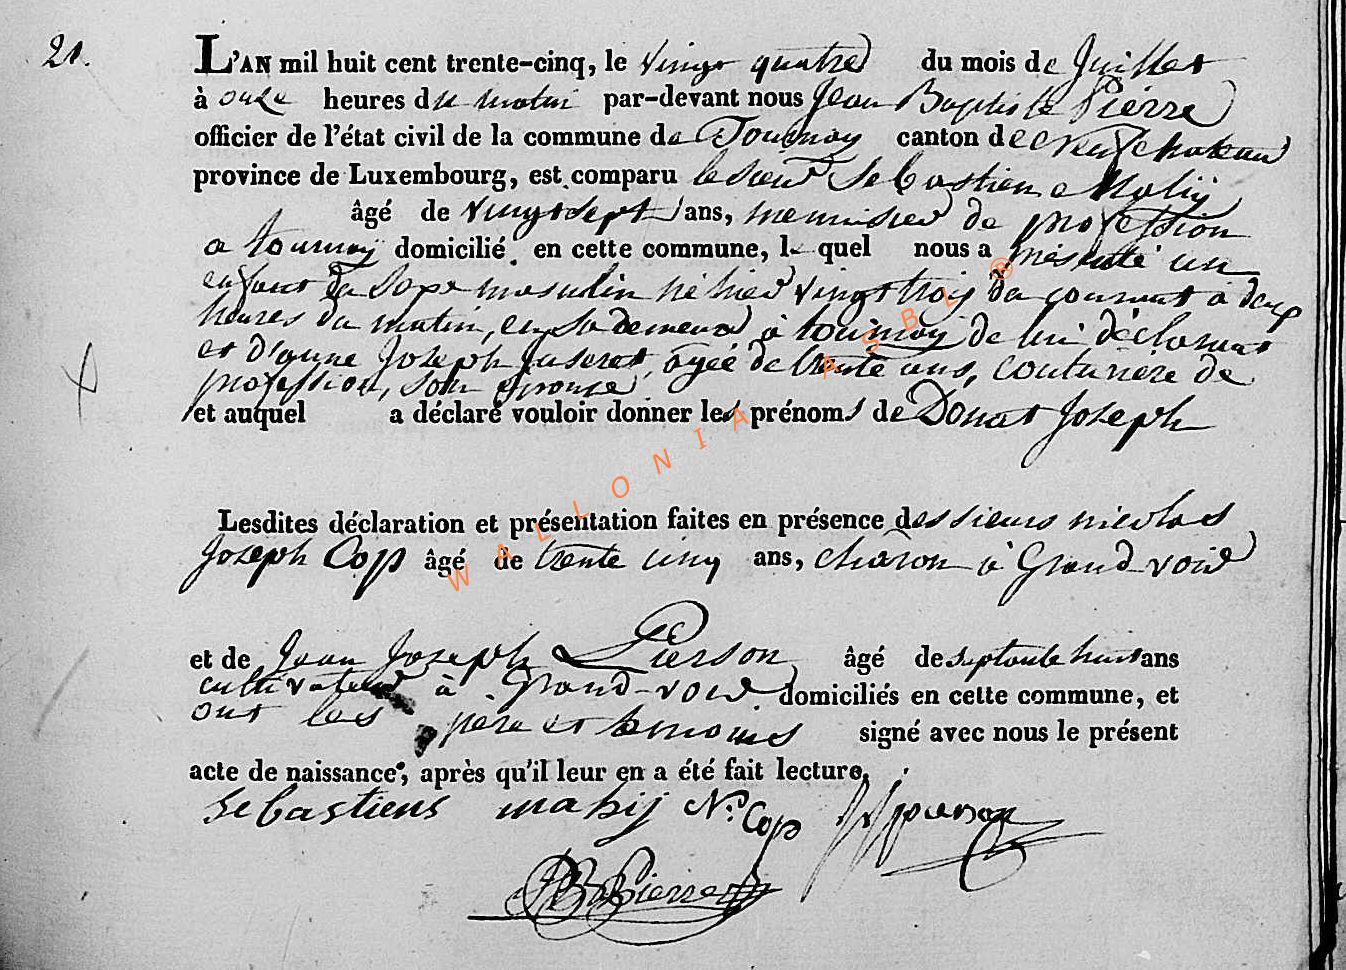 21.
L'AN mil huit cent trente-cinq, le vingt quatre du mois de Juillet
à onze heures du matin par-devant nous Jean Baptiste Pierre
officier de l'état civil de la commune de Tournay canton de Neufchateau
province de Luxembourg, est comparu le sieur Sebastien
âgé de vingt sept ans, menuisier de profession
a tournay domicilié en cette commune, lequel nous a présenté un
enfant du sexe masculin né hier vingt trois du courant à deux
heures du matin, en sa demeure à tournay de lui déclarant
et d'anne Joseph Juseret, agée de trente ans, couturière de
profession, son épouse
et auquel a déclaré vouloir donner les prénoms de Donat Joseph
Lesdites déclaration et présentation faites en présence des sieurs nicolas
Joseph Cop âgé de trente cinq ans, charon à Grand-voir
et de Jean Joseph Pierson âgé de septante huit ans
cultivateur à Grand-voir domiciliés en cette commune, et
ont les père et temoins signé avec nous le présent
acte de naissance, après qu'il leur en a été fait lecture.
sebastiens mahij Ns. Cop JJpierson
JB Pierre
WALLONIA ASBL ®